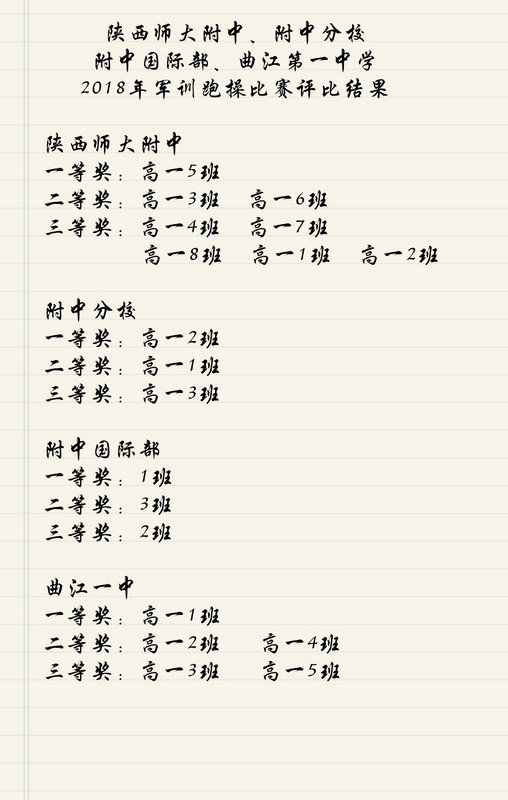 陕西师大附中、附中分校
附中国际部、曲江第一中学
2018年军训跑操比赛评比结果
陕西师大附中
一等奖：高一5班
二等奖：高一3班 高一6班
三等奖：高一4班 高一7班
高一8班 高一1班 高一2班
附中分校
一等奖：高一2班
二等奖：高一1班
三等奖：高一3班
附中国际部
一等奖：1班
二等奖：3班
三等奖：2班
曲江一中
一等奖：高一1班
二等奖：高一2班 高一4班
三等奖：高一3班 高一5班